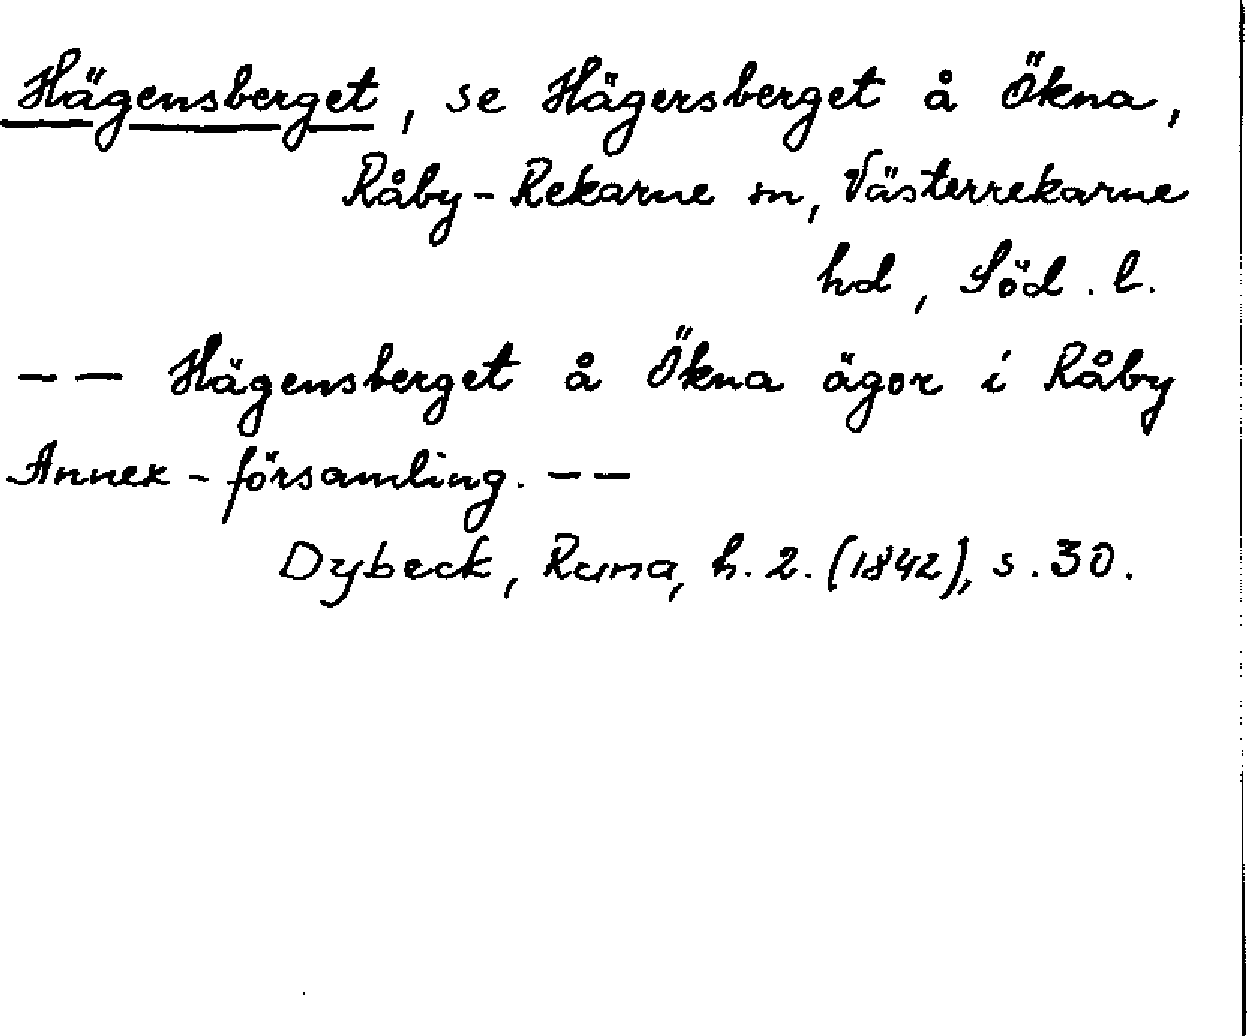 Hägensberget, se Hägersberget å Ökna,
Råby-Rekarne sn, Västerrekarne
hd, Söd. l.
-- Hägensberget å Ökna ägor i Råby
Annex-församling. --
Dybeck, Runa, h. 2. (1842), s. 30.